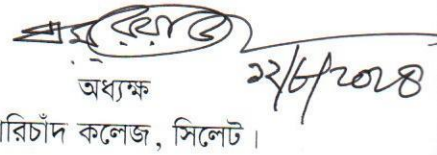 ১২/৮/২০২৪
অধ্যক্ষ
রিচাঁদ কলেজ, সিলেট।